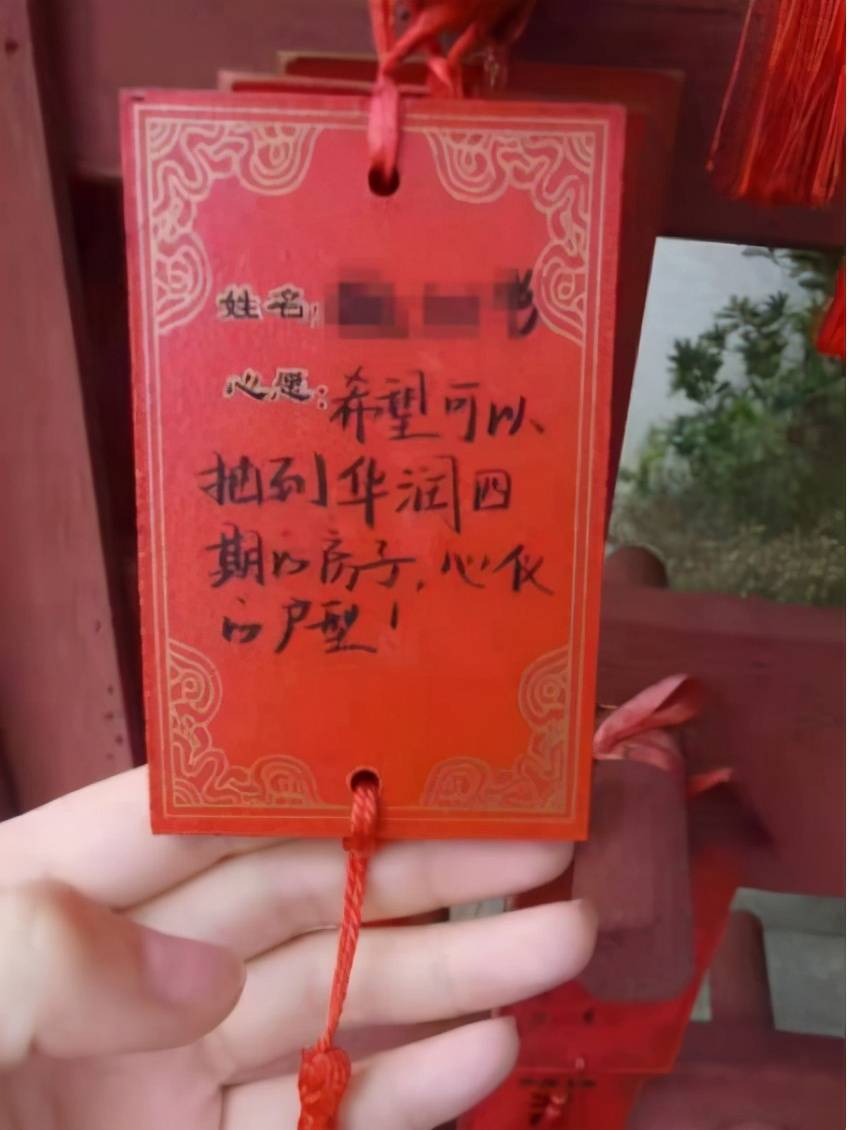 姓名:
心愿:希望可以
抛到华润四
期的房子,心仪
的户型!